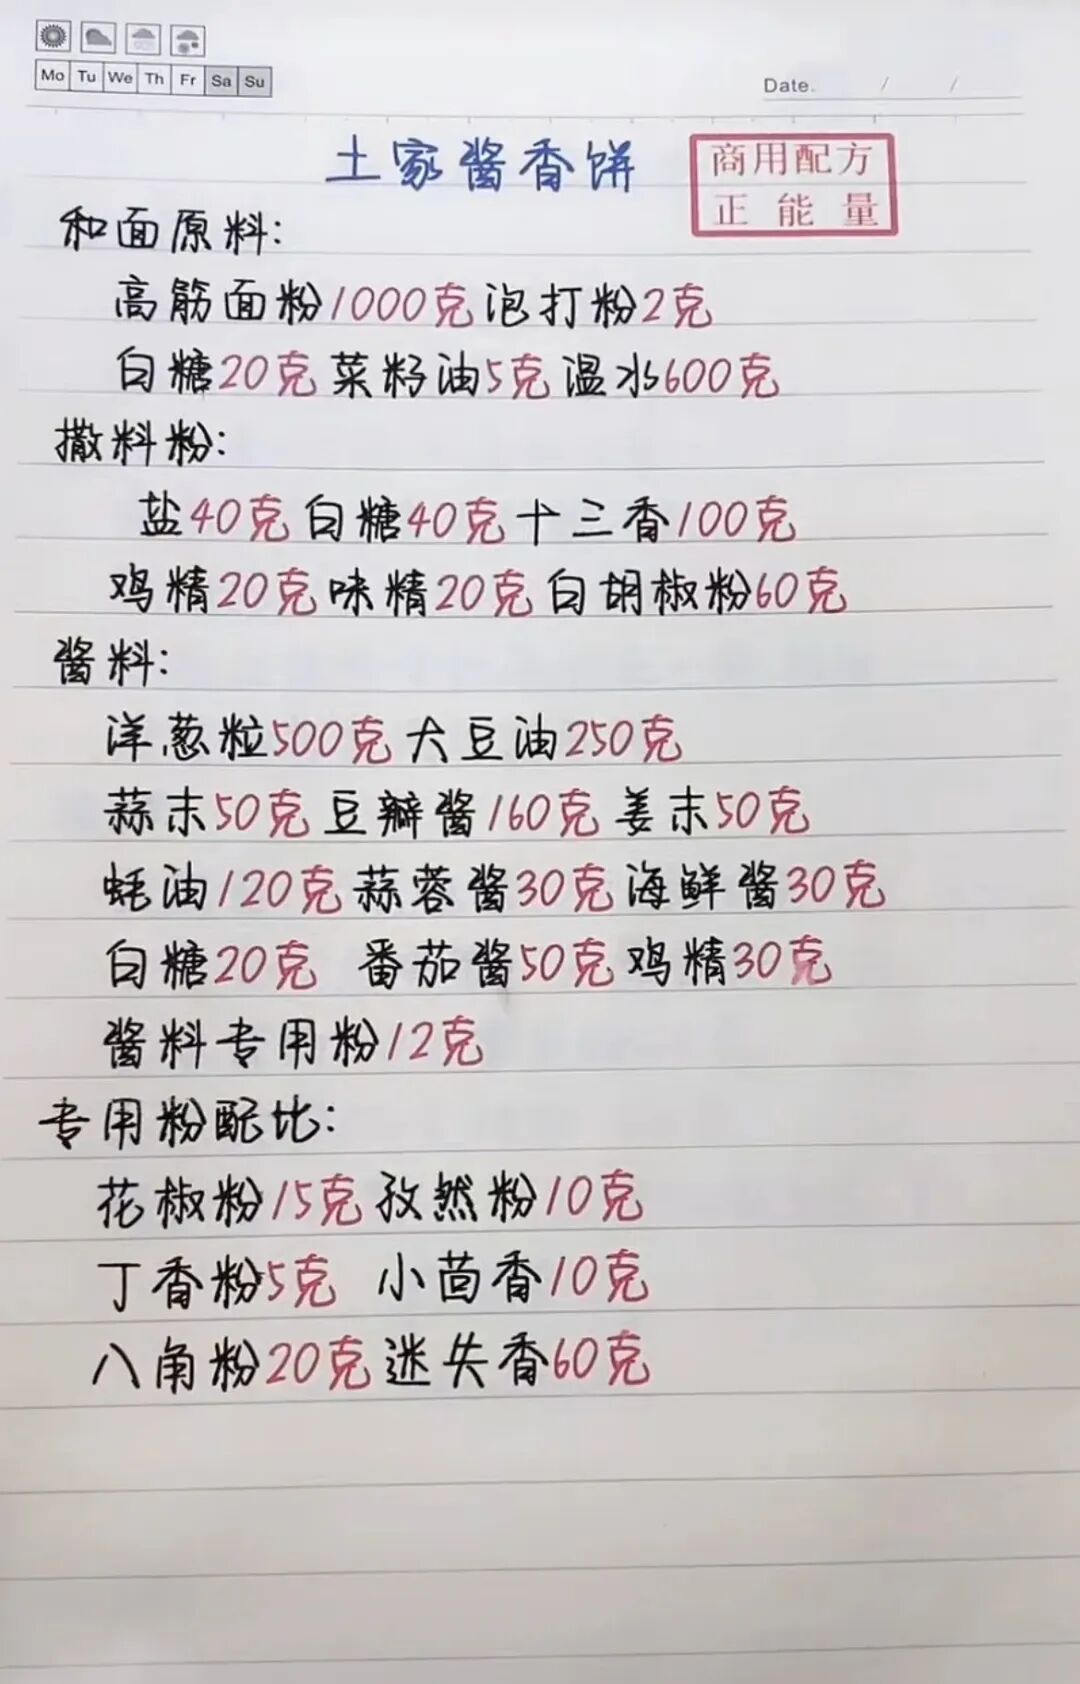 Mo Tu We Th Fr Sa Su
Date. / /
土家酱香饼
商用配方
正能量
和面原料:
高筋面粉1000克泡打粉2克
白糖20克菜籽油5克温水600克
撒料粉:
盐40克白糖40克十三香100克
鸡精20克味精20克白胡椒粉60克
酱料:
洋葱粒500克大豆油250克
蒜末50克豆瓣酱160克姜末50克
蚝油120克蒜蓉酱30克海鲜酱30克
白糖20克 番茄酱50克鸡精30克
酱料专用粉12克
专用粉配比:
花椒粉15克孜然粉10克
丁香粉5克 小茴香10克
八角粉20克迷失香60克